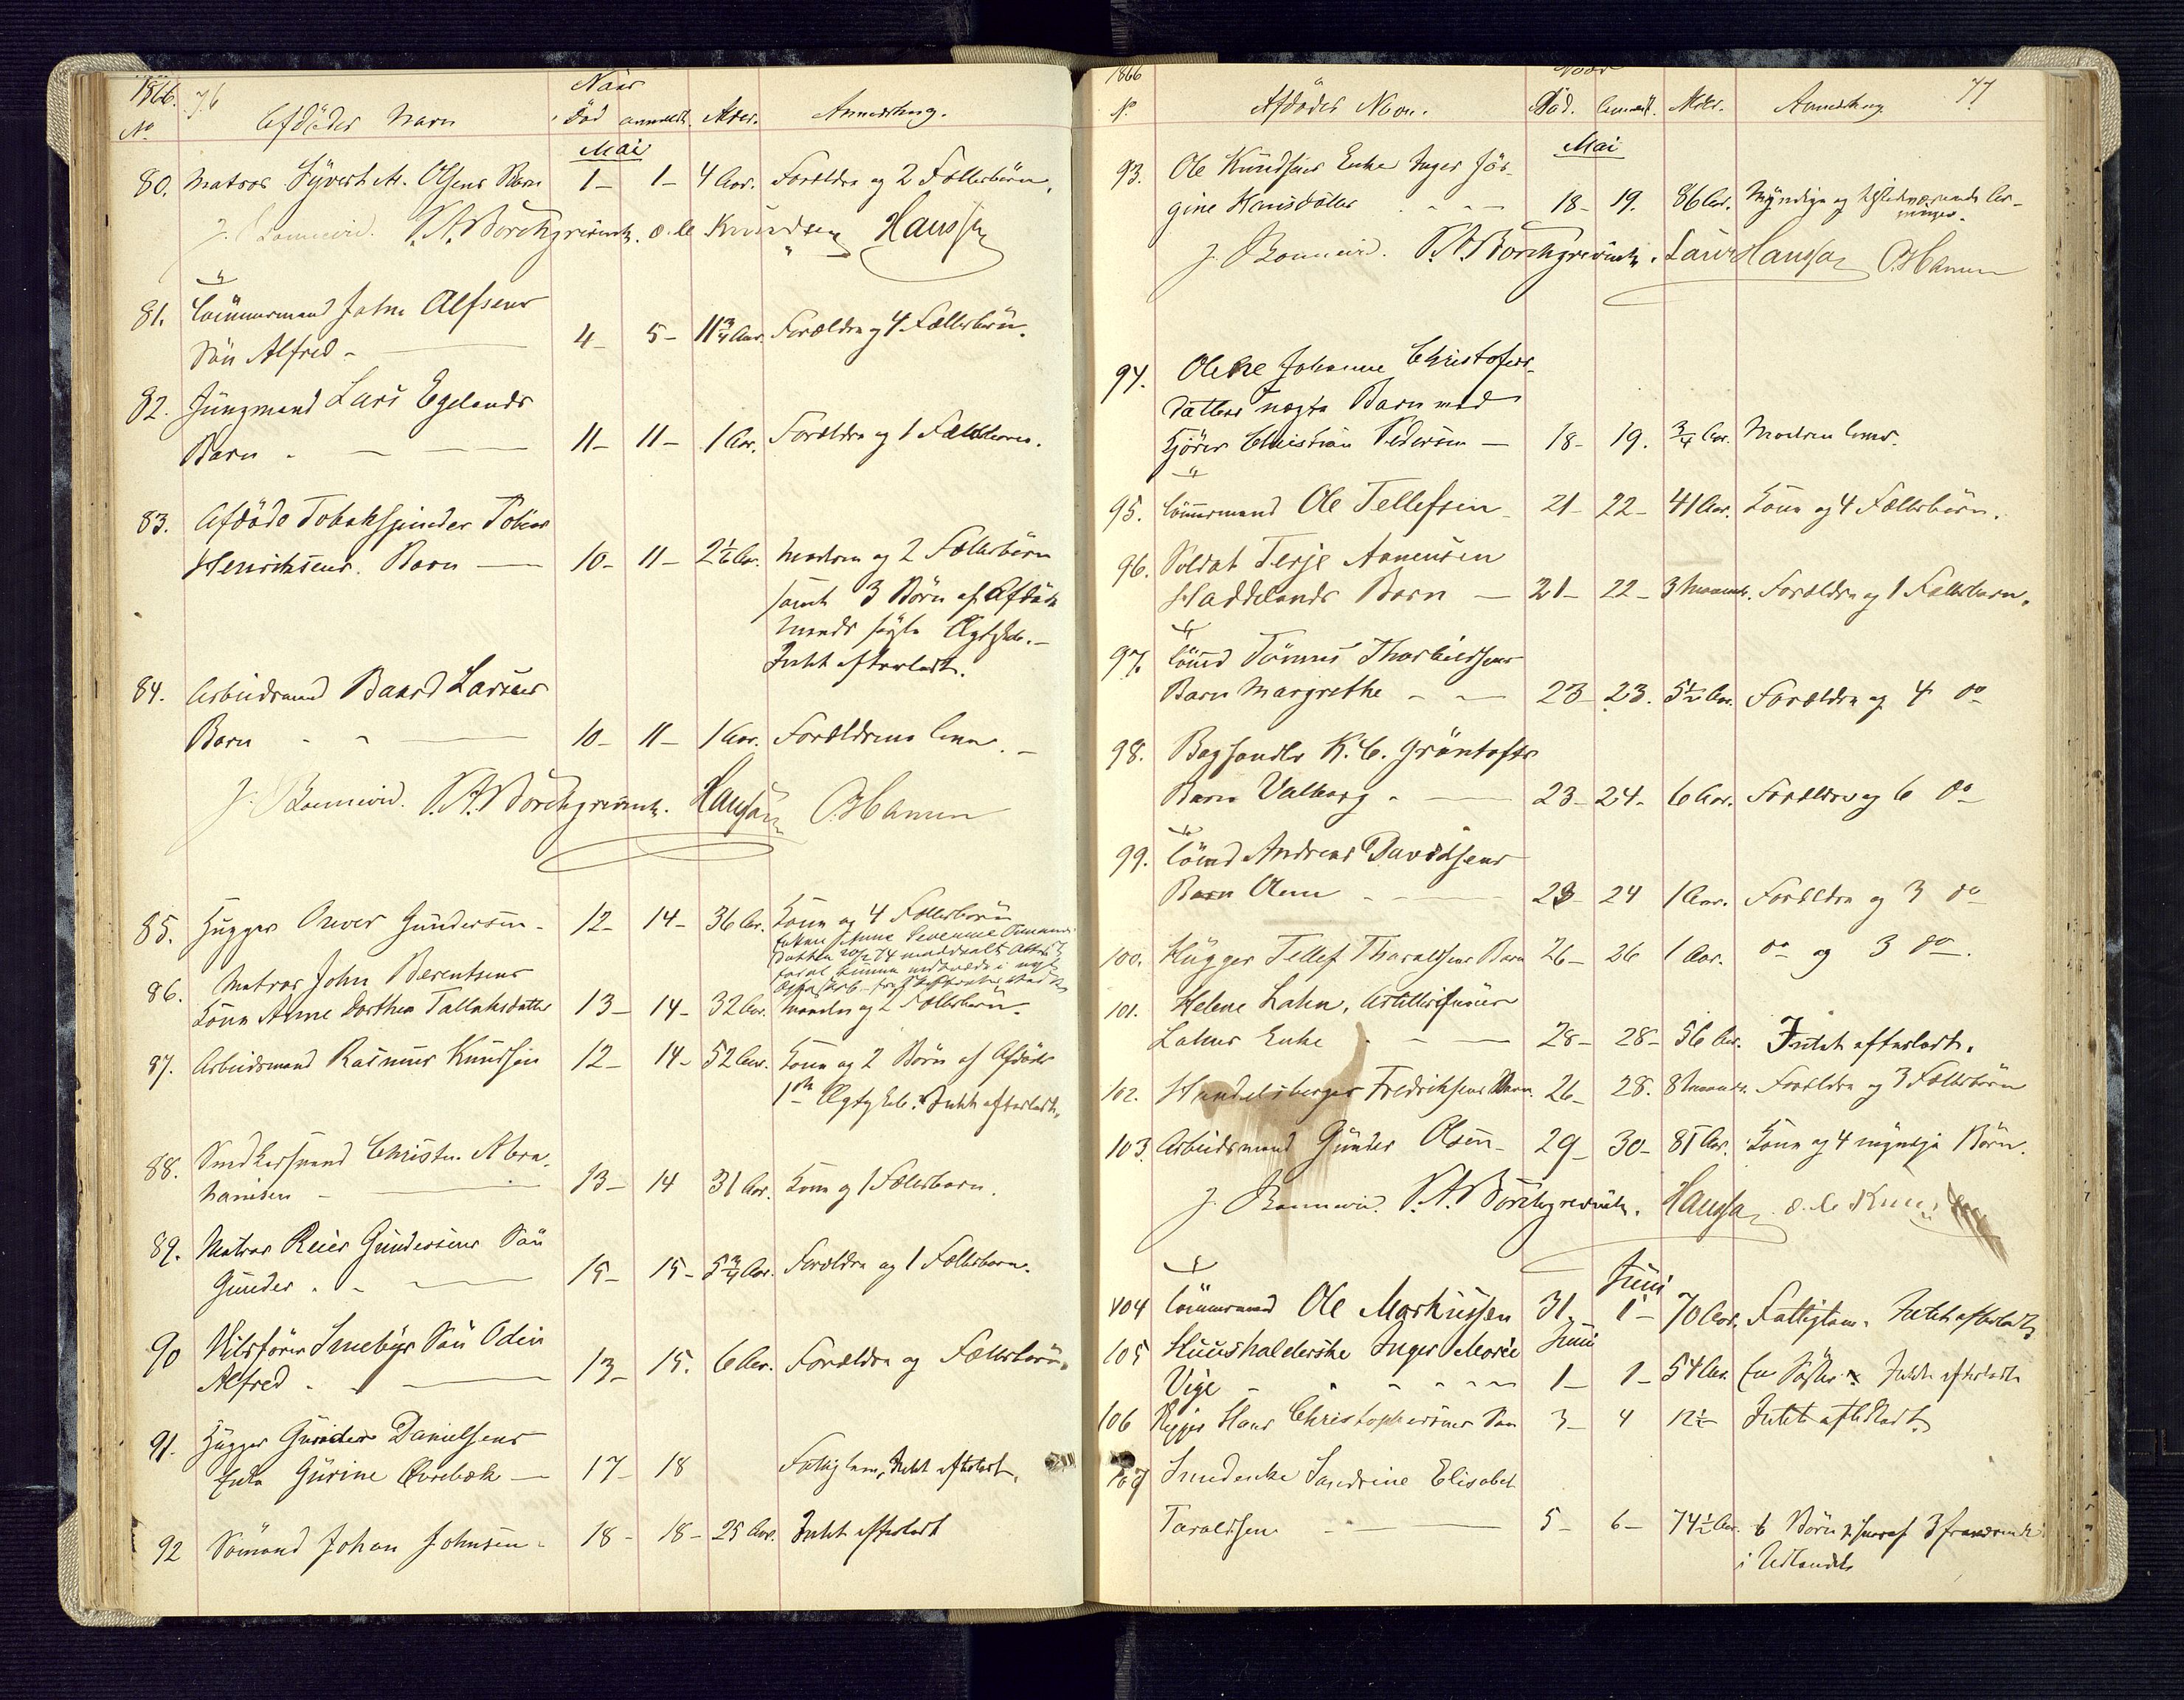 1866. 76
Naar
No Afdødes Navn Død anmeldt. Alder. Anmærkning.
Mai
80. Matros Syvert M. Olsens Barn 1 - 1 - 4 Aar. Forældre og 2 Fællesbørn.
V. A. Borchgrevink. Ole Knudsen Haussen
81. Tömmermand John Alfsens
Søn Alfred - 4 - 5 - 11 3/4 Aar. Forældre og 4 Fællesbørn.
82. Jungmand Lars Egelands
Barn - 11 - 11 - 1 Aar. Forældre og 1 Fællesbarn.
83. Afdøde Tobakspinder Tobias
Henriksens Barn - 10 - 11 - 2 1/2 Aar. Moderen og 2 Fællesbørn
samt 3 Børn af Afdøde
Mands første Ægteskab. -
Intet efterladt.
84. Arbeidsmand Baard Larsens
Barn - 10 - 11 - 1 Aar. Forældrene
V. A. Borchgrevink. Haussen O. Hansen
85. Hugger Gundersen - 12 - 14 - 36 Aar. Kone og 4 Fællesbørn
Enken Anne
86. Matros John Berentsens
Kone Anne Dorthea Tallaksdatter 13 - 14 - 32 Aar. Manden og 2 Fællesbørn.
87. Arbeidsmand Rasmus Knudsen 12 - 14 - 52 Aar. Kone og 2 Børn af Afdødes
1ste Ægteskab. Intet efterladt.
88. Smedkersvend Christen Abra-
hamsen - 13 - 14 31 Aar. Kone og 1 Fællesbarn.
89. Matros Reier Gundersens Søn
Gunder - 15 - 15 - 5 3/4 Aar. Forældre og 1 Fællesbarn.
90 Smebys Søn Odin
Alfred - 13 - 15. 6 Aar. Forældre og Fællesbørn.
91. Hugger Gunder Danielsens
Enke Gurine Øvrebæk - 17 - 18 Fattiglem, Intet efterladt.
92 Sømand Johan Johnsen - 18 - 18 - 25 Aar. Intet efterladt
1866 77
Naar
No Afdødes Navn. Død. Anmeldt. Alder. Anmærkning
Mai
93. Ole Knudsens Enke Inger Jör-
gine Hansdatter 18 - 19. 86 Aar. Myndige og tilstedeværende Ar-
vinger.
V. A. Borchgrevink. Laur Haussen O. Hansen
94. Olene Johanne Christofers-
datters uægte Barn med
Kjører Christian Pedersen - 18 - 19. 3/4 Aar. Moderen
95. Tömmermand Ole Tellefsen 21 - 22 - 41 Aar. Kone og 4 Fællesbørn.
96. Soldat Terje Aanensen
Haddelands Barn - 21 - 22 - 3 Maaneder. Forældre og 1 Fællesbarn.
97. Tömd Tönnes Thorkildsens
Barn Margrethe - 23 - 23. 5 1/2 Aar. Forældre og 4 do
98. Boghandler K. C. Grøntofts
Barn Valborg - 23 - 24 - 6 Aar. Forældre og 6 do
99. Tömd Andreas Davidsens
Barn Anne - 23 - 24 1 Aar. Forældre og 3 do
100. Hugger Tellef Tharaldsens Barn 26 - 26 1 Aar. do og 3 do.
101. Helene Lahn, Artillerist
Lahns Enke - 28 - 28 - 56 Aar. Intet efterladt.
102. Handelsborger Fredriksens Barn. 26 - 28. 8 Maaneder. Forældre og 3 Fællesbørn
103. Arbeidsmand Gunder Olsen - 29 - 30 - 81 Aar. Kone og 4 myndige Børn.
V. A. Borchgrevink. Haussen Ole Knudsen
Juni
104 Tömmermand Ole Markussen 31 - 1 - 70 Aar. Fattiglem. Intet efterladt
105 Huusholderske Inger Marie Juni
Vige - 1 - 1 - 54 Aar. En Søster. Intet efterladt
106 Rigger Hans Christophersens Søn 3 - 4 12 1/2 Intet efterladt
107 Smedenke Sandrine Elisabet
Taraldsen - 5 - 6 - 74 1/2 Aar. 6 Børn hvoraf 3 fraværende
i Udlandet